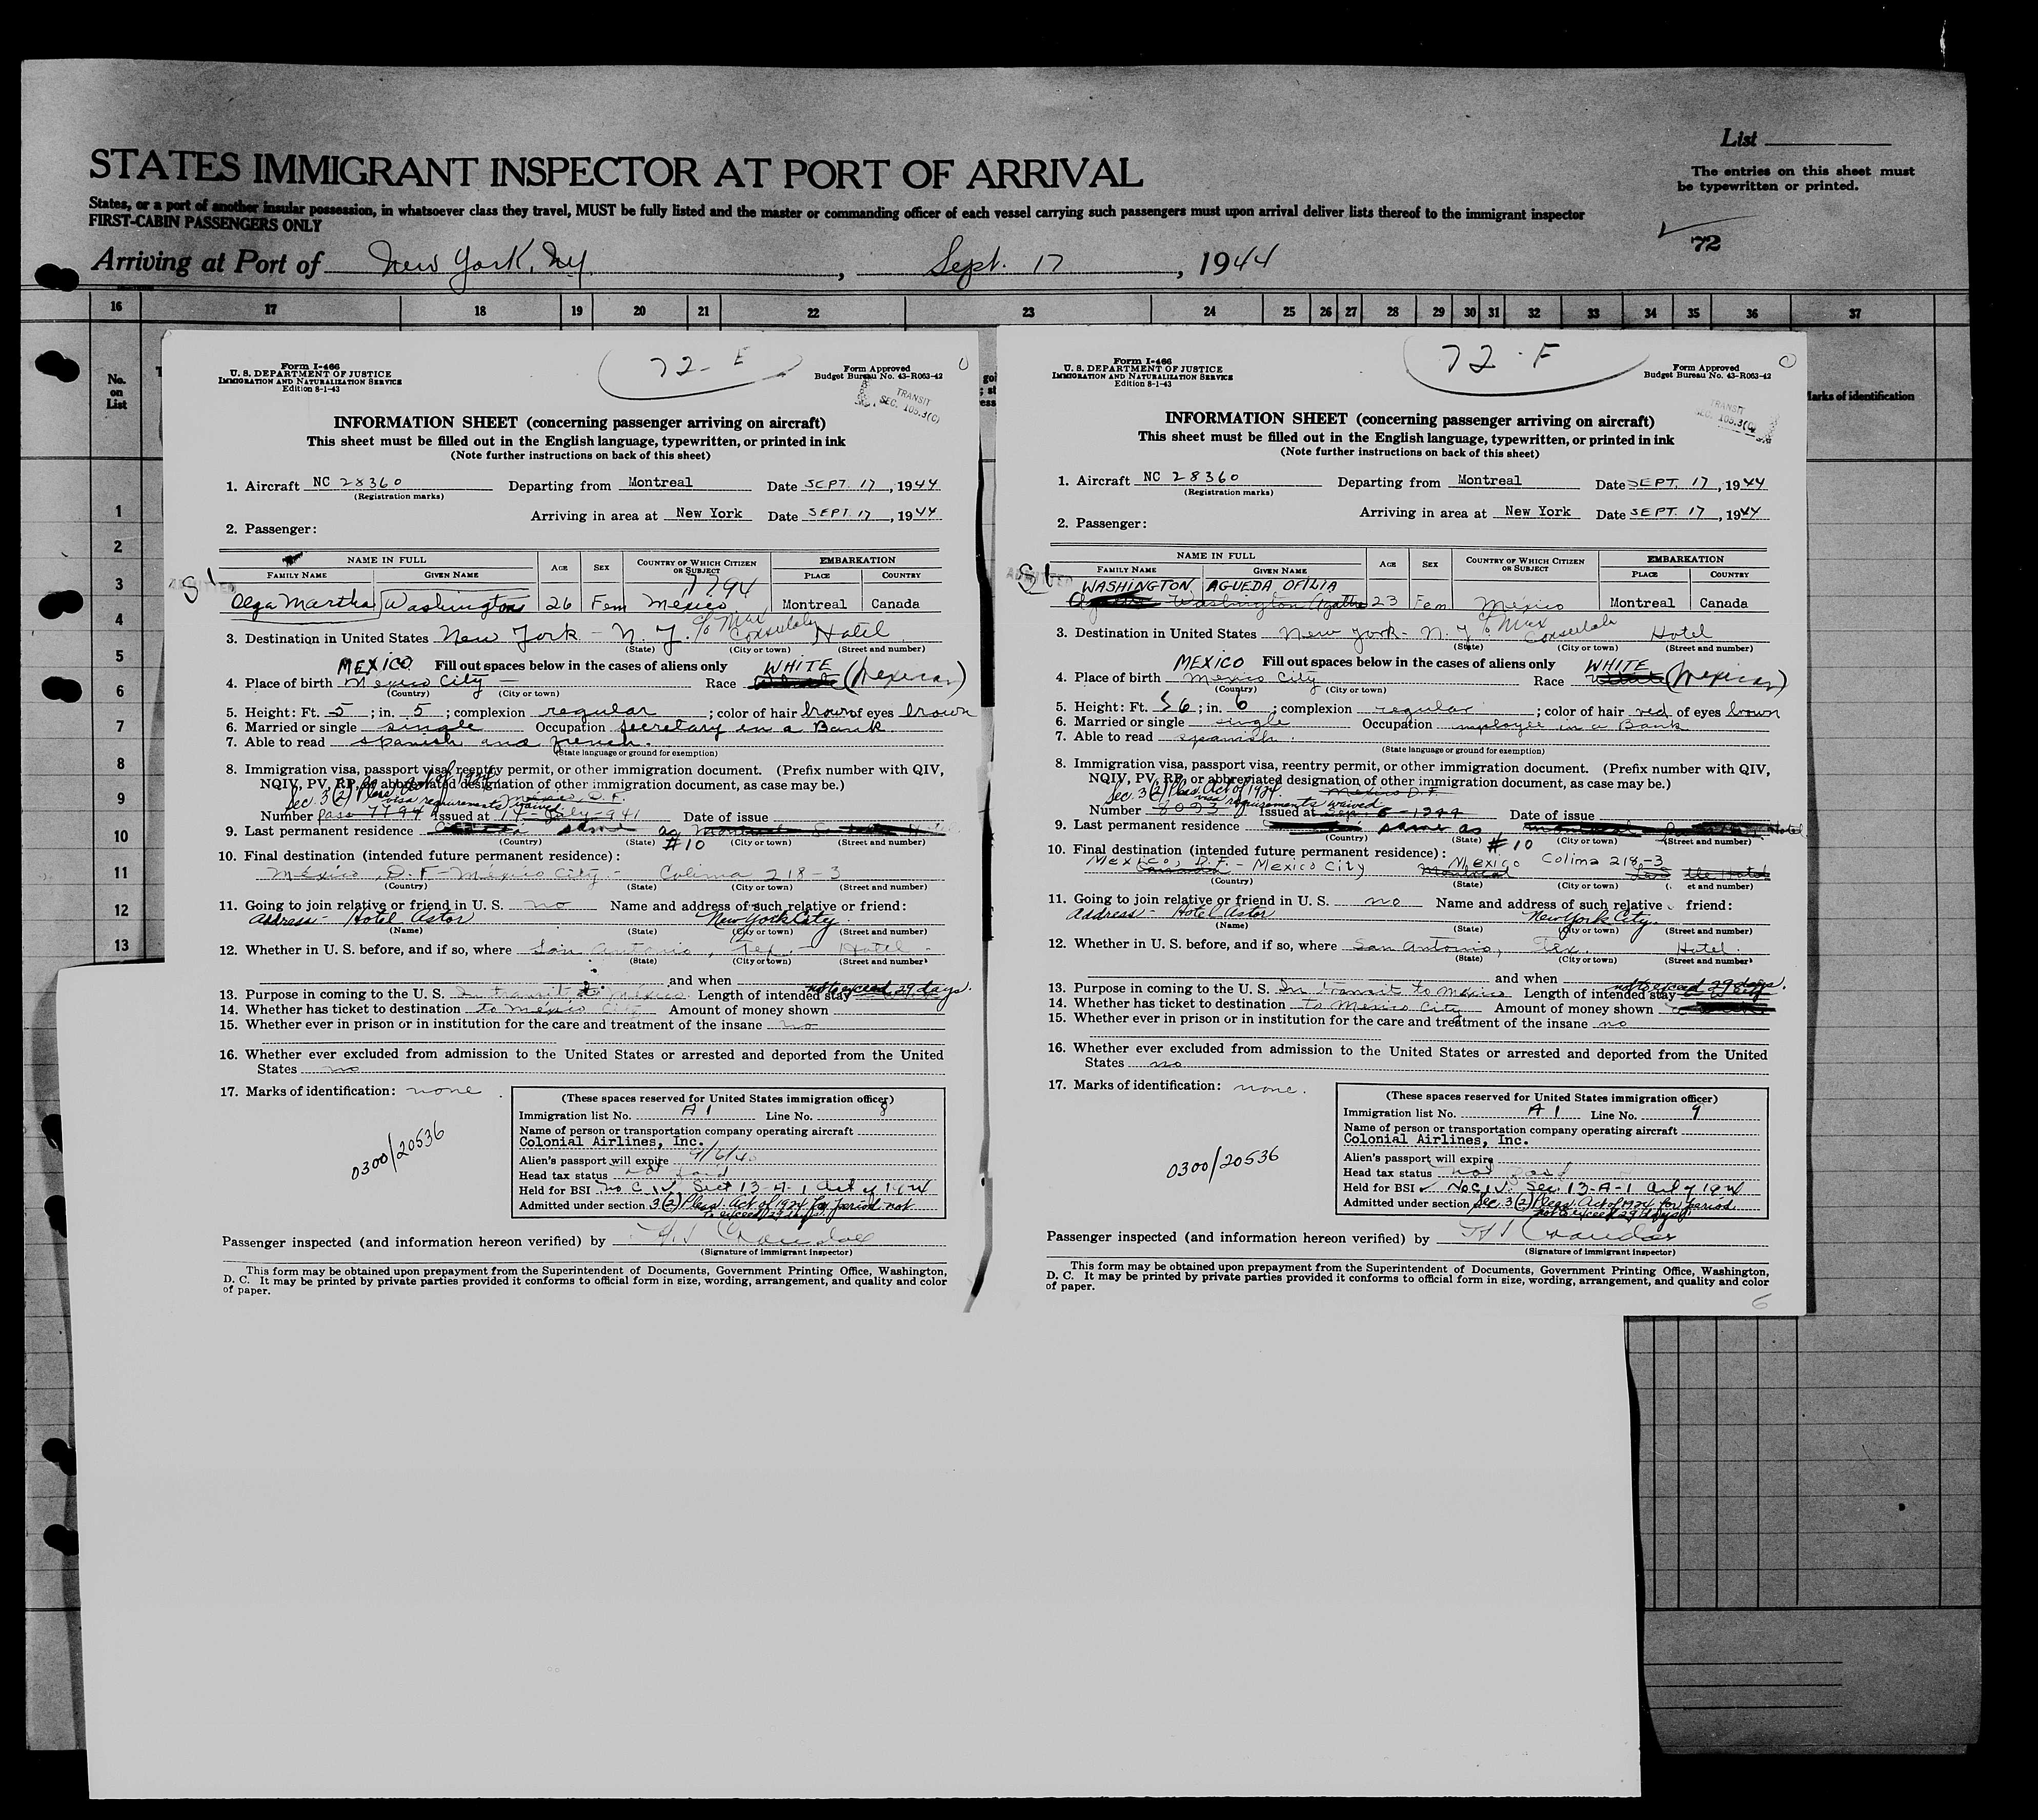 List
STATES IMMIGRANT INSPECTOR AT PORT OF ARRIVAL
The entries on this sheet must
be typewritten or printed.
States, or a port of another insular possession, in whatsoever class they travel, MUST be fully listed and the master or commanding officer of each vessel carrying such passengers must upon arrival deliver lists thereof to the immigrant inspector
FIRST-CABIN PASSENGERS ONLY
72
Arriving at Port of New York, NY, Sept. 17, 1944
16 17 18 19 20 21 22 23 24 25 26 27 28 29 30 31 32 33 34 35 36 37
No.
on
List
Marks of identification
1
2
3
4
5
6
7
8
9
10
11
12
13
72-E
Form I-466
U. S. DEPARTMENT OF JUSTICE
IMMIGRATION AND NATURALIZATION SERVICE
Edition 8-1-43
Form Approved
Budget Bureau No. 43-R063-42
TRANSIT
SEC. 105.3(C)
INFORMATION SHEET (concerning passenger arriving on aircraft)
This sheet must be filled out in the English language, typewritten, or printed in ink
(Note further instructions on back of this sheet)
1. Aircraft NC 28360 Departing from Montreal Date SEPT. 17, 1944
(Registration marks)
Arriving in area at New York Date SEPT. 17, 1944
2. Passenger:
NAME IN FULL AGE SEX COUNTRY OF WHICH CITIZEN OR SUBJECT EMBARKATION
FAMILY NAME GIVEN NAME PLACE COUNTRY
ADMITTED
7794
Olga Martha Washington 26 Fem Mexico Montreal Canada
3. Destination in United States New York - N.Y. c/o Mex Consulate Hotel
(State) (City or town) (Street and number)
MEXICO Fill out spaces below in the cases of aliens only WHITE
4. Place of birth Mexico City Race (Mexican)
(Country) (City or town)
5. Height: Ft. 5; in. 5; complexion regular; color of hair brown of eyes brown
6. Married or single single Occupation secretary in a Bank
7. Able to read spanish and french.
(State language or ground for exemption)
8. Immigration visa, passport visa, reentry permit, or other immigration document. (Prefix number with QIV,
NQIV, PV, RP, or abbreviated designation of other immigration document, as case may be.)
Sec. 3(2) Act of 1924 visa requirements waived Mexico, D.F.
Number Pass 7794 Issued at 14-July-941 Date of issue
9. Last permanent residence same as #10
(Country) (State) (City or town) (Street and number)
10. Final destination (intended future permanent residence):
México, D.F-México City - Colima 218-3
(Country) (State) (City or town) (Street and number)
11. Going to join relative or friend in U. S. no Name and address of such relative or friend:
Address - Hotel Astor New York City.
(Name) (City or town) (Street and number)
12. Whether in U. S. before, and if so, where San Antonio, Tex. - Hotel -
(State) (City or town) (Street and number)
and when
13. Purpose in coming to the U. S. In transit to México. Length of intended stay not exceed 29 days.
14. Whether has ticket to destination to México City Amount of money shown
15. Whether ever in prison or in institution for the care and treatment of the insane no
16. Whether ever excluded from admission to the United States or arrested and deported from the United
States no
17. Marks of identification: none
0300/20536
(These spaces reserved for United States immigration officer)
Immigration list No. A 1 Line No. 8
Name of person or transportation company operating aircraft
Colonial Airlines, Inc.
Alien's passport will expire
Head tax status not paid
Held for BSI No C.I.V. Sec 13-A-1 Act of 1924
Admitted under section 3(2) Act of 1924 for period not
to exceed 29 days
Passenger inspected (and information hereon verified) by
(Signature of immigrant inspector)
This form may be obtained upon prepayment from the Superintendent of Documents, Government Printing Office, Washington,
D. C. It may be printed by private parties provided it conforms to official form in size, wording, arrangement, and quality and color
of paper.
72-F
Form I-466
U. S. DEPARTMENT OF JUSTICE
IMMIGRATION AND NATURALIZATION SERVICE
Edition 8-1-43
Form Approved
Budget Bureau No. 43-R063-42
TRANSIT
SEC. 105.3(C)
INFORMATION SHEET (concerning passenger arriving on aircraft)
This sheet must be filled out in the English language, typewritten, or printed in ink
(Note further instructions on back of this sheet)
1. Aircraft NC 28360 Departing from Montreal Date SEPT. 17, 1944
(Registration marks)
Arriving in area at New York Date SEPT. 17, 1944
2. Passenger:
NAME IN FULL AGE SEX COUNTRY OF WHICH CITIZEN OR SUBJECT EMBARKATION
FAMILY NAME GIVEN NAME PLACE COUNTRY
ADMITTED
WASHINGTON AGUEDA OFILIA
Washington Agatha 23 Fem México Montreal Canada
3. Destination in United States New York - N.Y c/o Mex Consulate Hotel
(State) (City or town) (Street and number)
MEXICO Fill out spaces below in the cases of aliens only WHITE
4. Place of birth Mexico City Race (Mexican)
(Country) (City or town)
5. Height: Ft. 5; in. 6; complexion regular; color of hair red of eyes brown
6. Married or single single Occupation employee in a Bank
7. Able to read spanish.
(State language or ground for exemption)
8. Immigration visa, passport visa, reentry permit, or other immigration document. (Prefix number with QIV,
NQIV, PV, RP, or abbreviated designation of other immigration document, as case may be.)
Sec. 3(2) Act of 1924 visa requirements waived Mexico D.F.
Number 8093 Issued at Sep. 6-1944 Date of issue
9. Last permanent residence same as #10
(Country) (State) (City or town) (Street and number)
10. Final destination (intended future permanent residence):
Mexico, D.F. - Mexico City Mexico Colima 218-3
(Country) (State) (City or town) (Street and number)
11. Going to join relative or friend in U. S. no Name and address of such relative friend:
Address - Hotel Astor New York City.
(Name) (City or town) (Street and number)
12. Whether in U. S. before, and if so, where San Antonio, Tex. Hotel.
(State) (City or town) (Street and number)
and when
13. Purpose in coming to the U. S. In transit to México Length of intended stay not exceed 29 days.
14. Whether has ticket to destination to México City Amount of money shown
15. Whether ever in prison or in institution for the care and treatment of the insane no
16. Whether ever excluded from admission to the United States or arrested and deported from the United
States no
17. Marks of identification: none.
0300/20536
(These spaces reserved for United States immigration officer)
Immigration list No. A 1 Line No. 9
Name of person or transportation company operating aircraft
Colonial Airlines, Inc.
Alien's passport will expire
Head tax status not paid
Held for BSI No C.I.V. Sec. 13-A-1 Act of 1924
Admitted under section Sec. 3(2) Act of 1924 for period
not to exceed 29 days
Passenger inspected (and information hereon verified) by
(Signature of immigrant inspector)
This form may be obtained upon prepayment from the Superintendent of Documents, Government Printing Office, Washington,
D. C. It may be printed by private parties provided it conforms to official form in size, wording, arrangement, and quality and color
of paper.
6